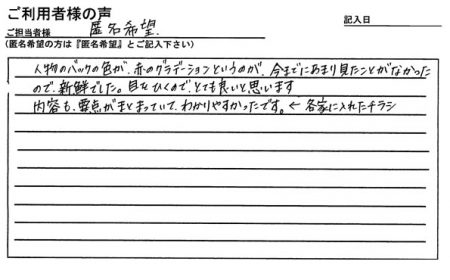 ご利用者様の声
記入日
ご担当者様 匿名希望
(匿名希望の方は『匿名希望』とご記入下さい)
人物のバックの色が、赤のグラデーションというのが、今までにあまり見たことがなかった
ので、新鮮でした。目をひくので、とても良いと思います
内容も、要点がまとまっていて、わかりやすかったです。← 各家に入れたチラシ